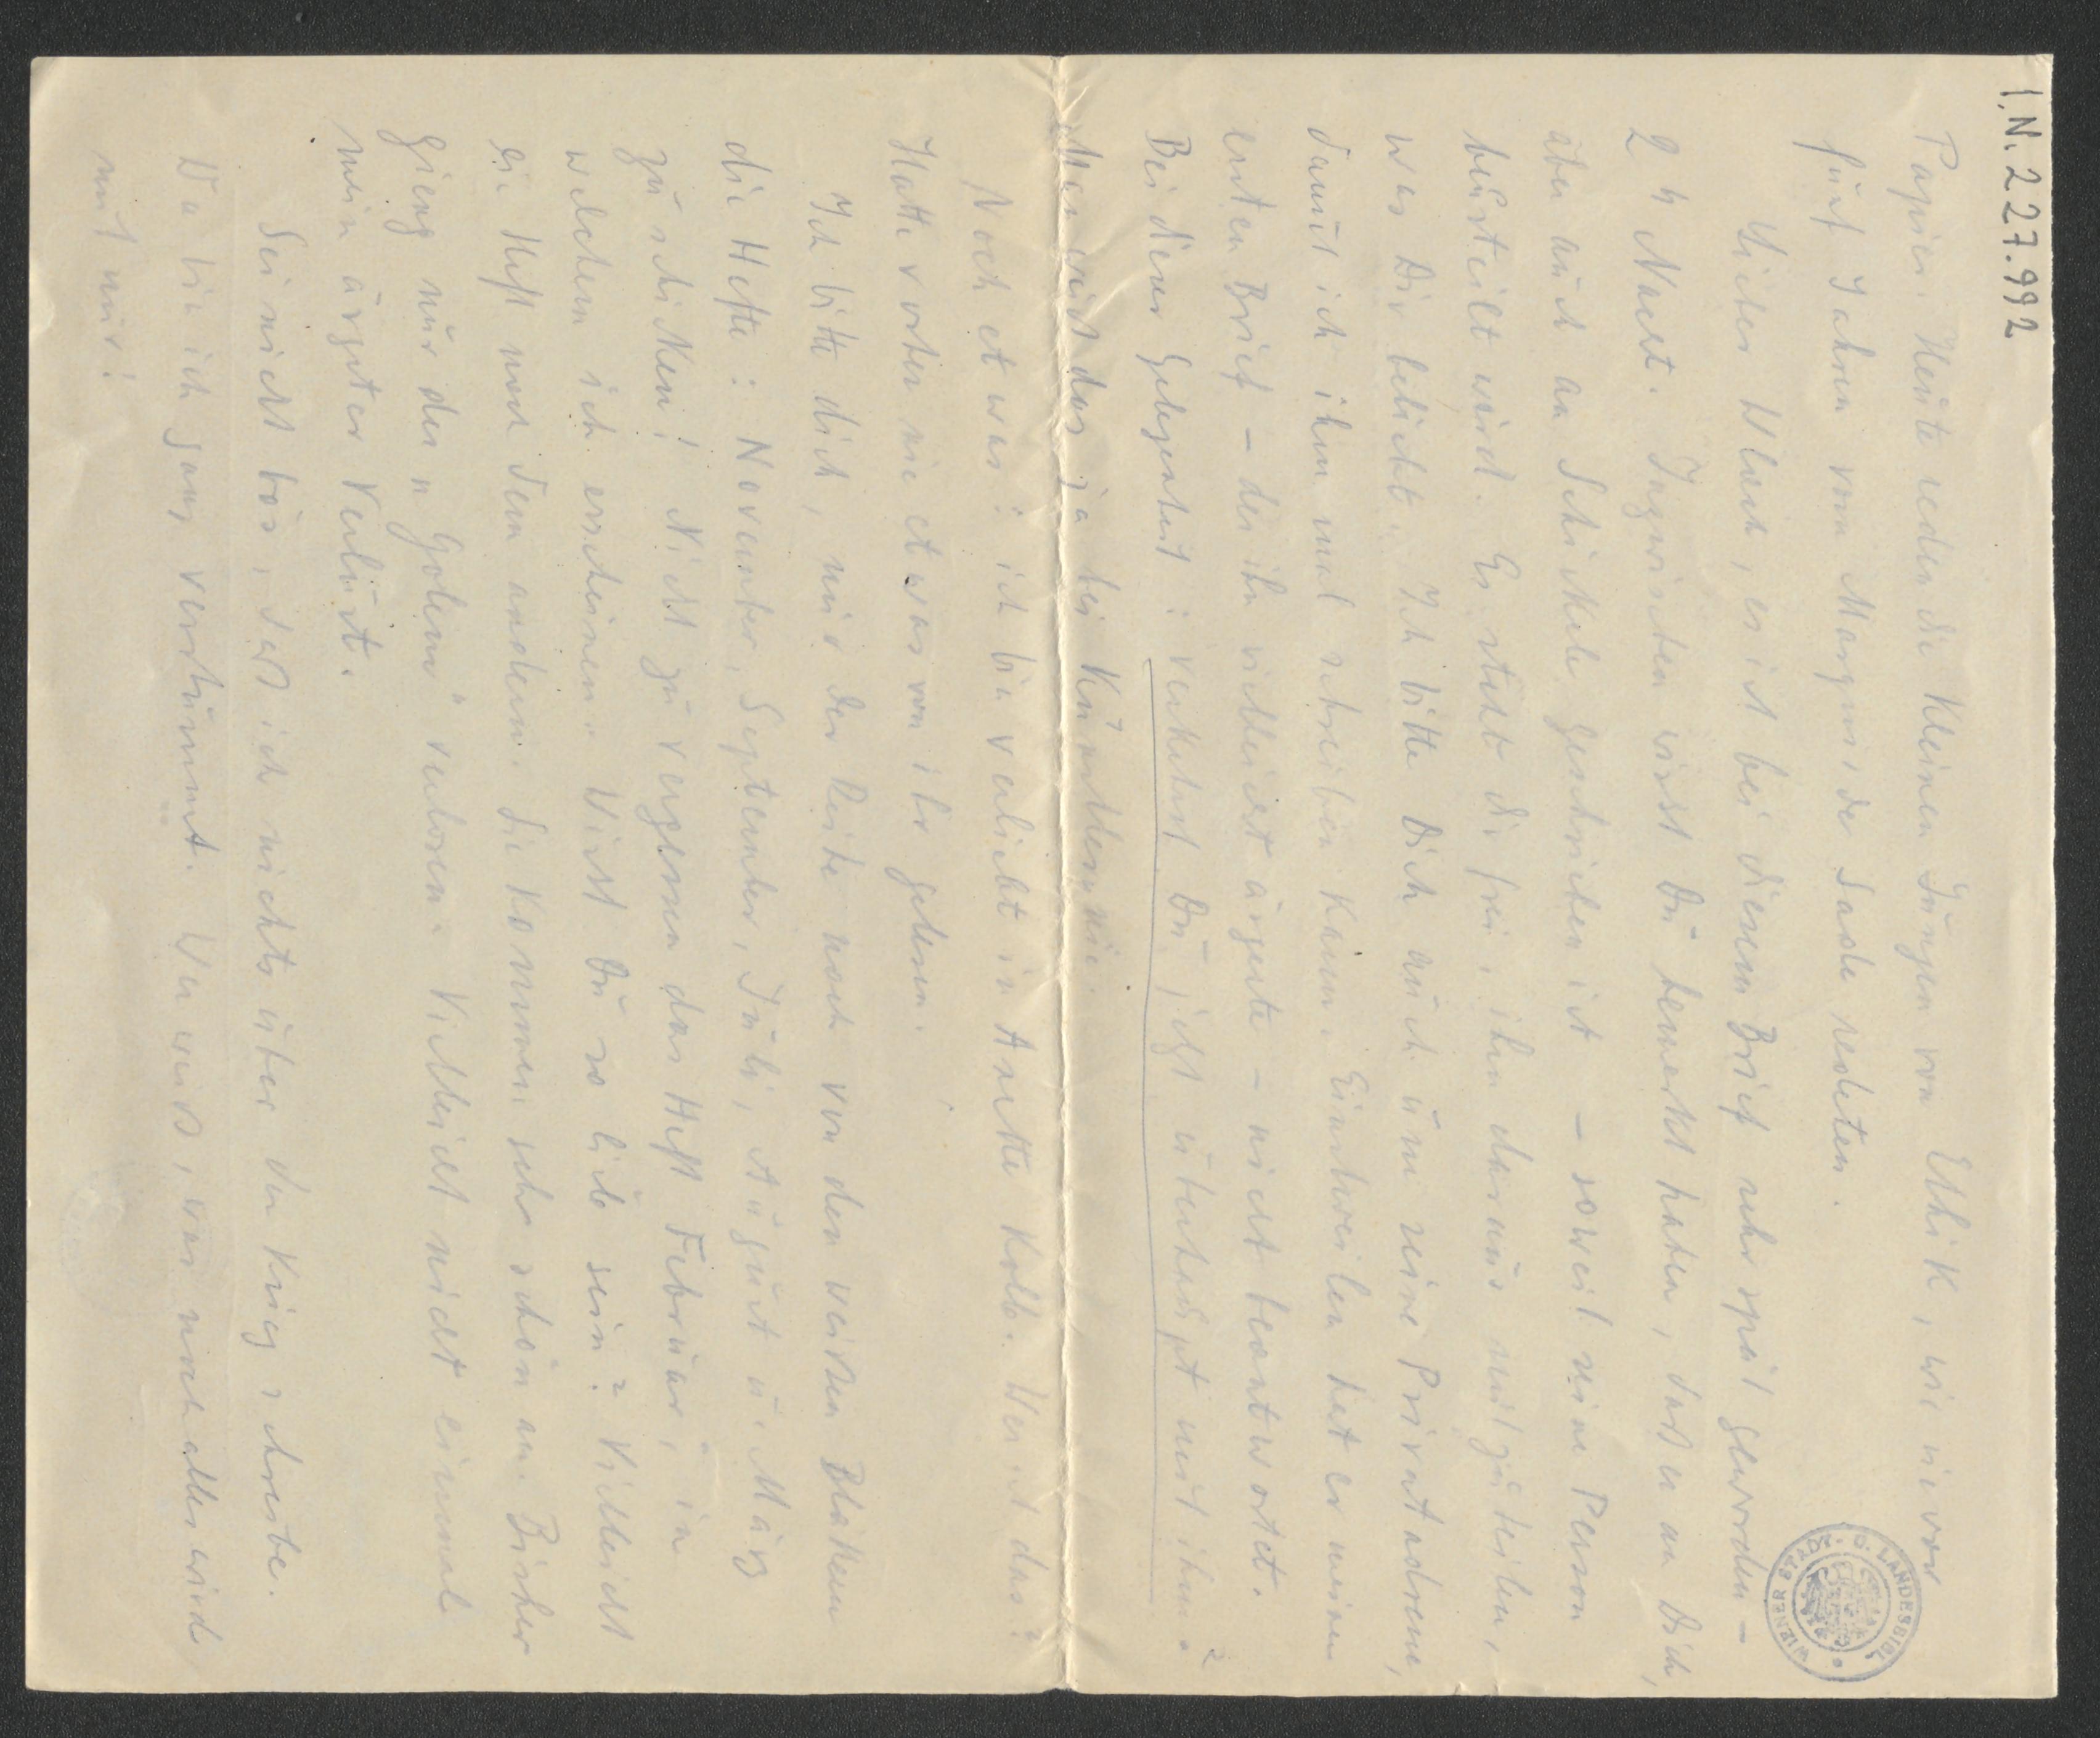 I.N. 227.992
WIENER STADT- U. LANDESBIBL
Papier. Heute reden die kleinen Jungen von Ethik, wie sie vor
fünf Jahren vom Marquis de Sade redeten.
Lieber Ullmann, es ist bei diesem Brief sehr spät geworden –
2 h Nacht. Inzwischen wirst Du bemerkt haben, daß er an Dich,
aber auch an Schickele geschrieben ist – soweit seine Person
beurteilt wird. Es steht Dir frei, ihm daraus mitzuteilen,
was Dir beliebt. Ich bitte Dich auch um seine Privatadresse,
damit ich ihm mal schreiben kann. Einstweilen hat er meinen
ersten Brief – der ihn vielleicht ärgerte – nicht beantwortet.
Bei dieser Gelegenheit: verkehrst Du jetzt überhaupt mit ihm?
Man weiß das ja bei Künstlern nie.
Noch etwas: ich bin verliebt in Anette Kolb. Wer ist das?
Hatte vorher nie etwas von ihr gelesen.
Ich bitte dich, mir der Reihe nach von den weißen Blättern
die Hefte: November, September, Juli, August u. März
zu schicken! Nicht zu vergessen das Heft Februar, in
welchem ich erschienen. Wirst Du so lieb sein? Vielleicht
ein Heft nach dem andern. Sie kommen sehr schön an. Bisher
gieng nur der "Golem" verloren. Vielleicht nicht einmal
mein ärgster Verlust.
Sei nicht bös, daß ich nichts über den Krieg schreibe.
Da bin ich ganz verstummt. Wer weiß, was noch alles wird
mit mir!